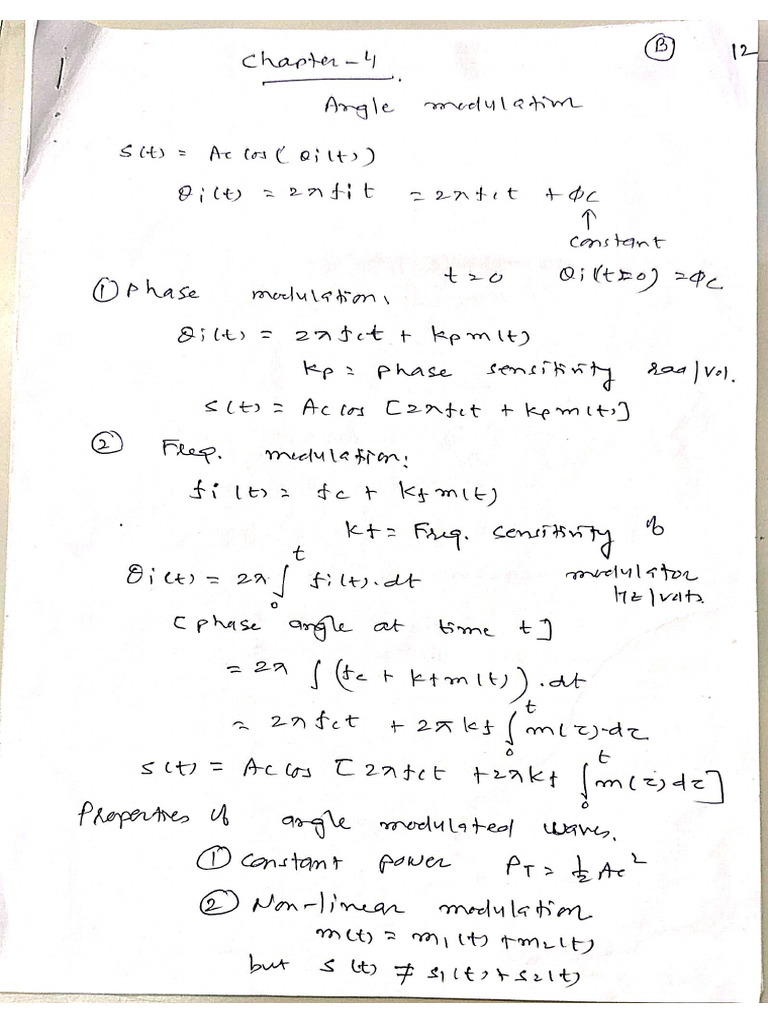 B 12
Chapter-4
Angle modulation
s(t) = Ac cos(θi(t))
θi(t) = 2πfit = 2πfct + ϕc
↑
constant
t=0 θi(t=0) = ϕc
① phase modulation,
θi(t) = 2πfct + kpm(t)
kp = phase sensitivity rad/vol.
s(t) = Ac cos [2πfct + kpm(t)]
② Freq. modulation:
fi(t) = fc + kfm(t)
kf = Freq. sensitivity of
modulator
Hz/volts.
θi(t) = 2π∫₀ᵗ fi(t).dt
[phase angle at time t]
= 2π ∫(fc + kfm(t)).dt
= 2πfct + 2πkf ∫₀ᵗ m(τ).dτ
s(t) = Ac cos [2πfct + 2πkf ∫₀ᵗ m(τ)dτ]
Properties of angle modulated waves.
① constant power PT = ½ Ac²
② Non-linear modulation
m(t) = m1(t) + m2(t)
but s(t) ≠ s1(t) + s2(t)